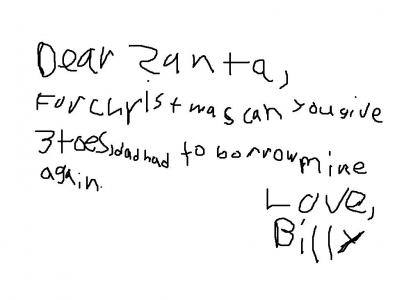 Dear Zanta,
For christmas can you give
3 toes, dad had to borrow mine
again.
Love,
Billy